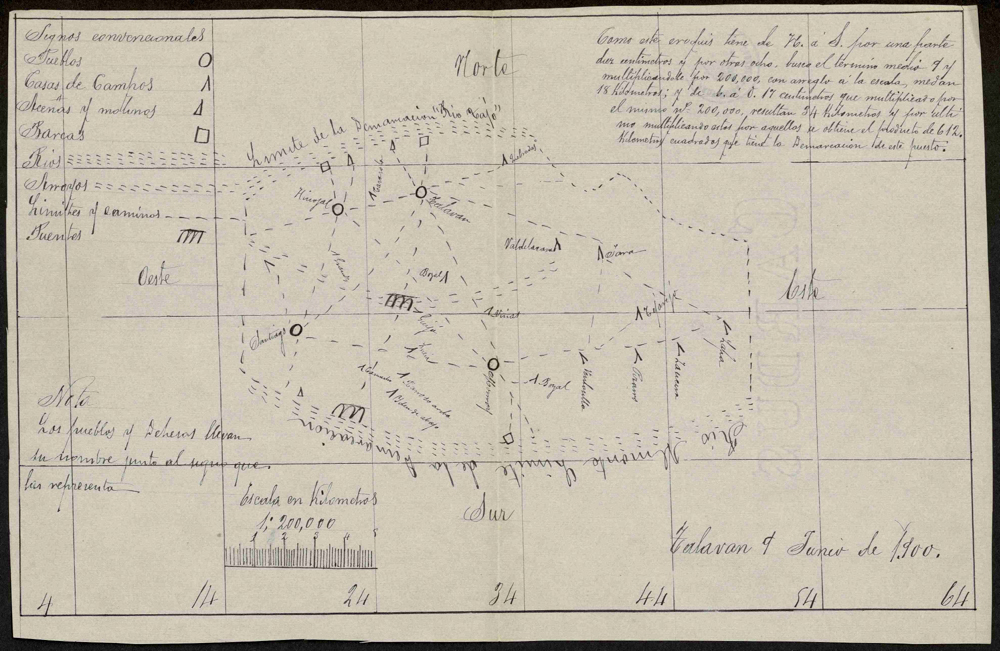 Signos convencionales
Pueblos
Casas de Campos
Aceñas y molinos
Barcas
Rios
Arroyos
Limites y caminos
Puentes
Norte
Como este croquis tiene de N. á S. por una parte
diez centimetros y por otras ocho, busco el término medio 9 y
multiplicandole por 200,000, con arreglo á la escala, me dan
18 Kilometros; y de E. á O. 17 centimetros que multiplicado por
el mismo nº 200,000, resultan 34 Kilometros y por ulti
mo multiplicando estos por aquellos se obtiene el producto de 612.
Kilometros cuadrados que tiene la Demarcacion de este puesto.
Limite de la Demarcacion "Rio Tajo"
Hinojal
Talavan
Valdelacasa
Jara
Oeste
Este
Boyal
Santiago
Viñas
Monroy
Boyal
Pizarro
Nota
Los pueblos y Dehesas llevan
su nombre junto al signo que
las representa
Rio Almonte Limite de la Demarcacion
Escala en Kilometros
1: 200,000
1 2 3 4 5
Sur
Talavan 9 Junio de 1900.
4 14 24 34 44 54 64